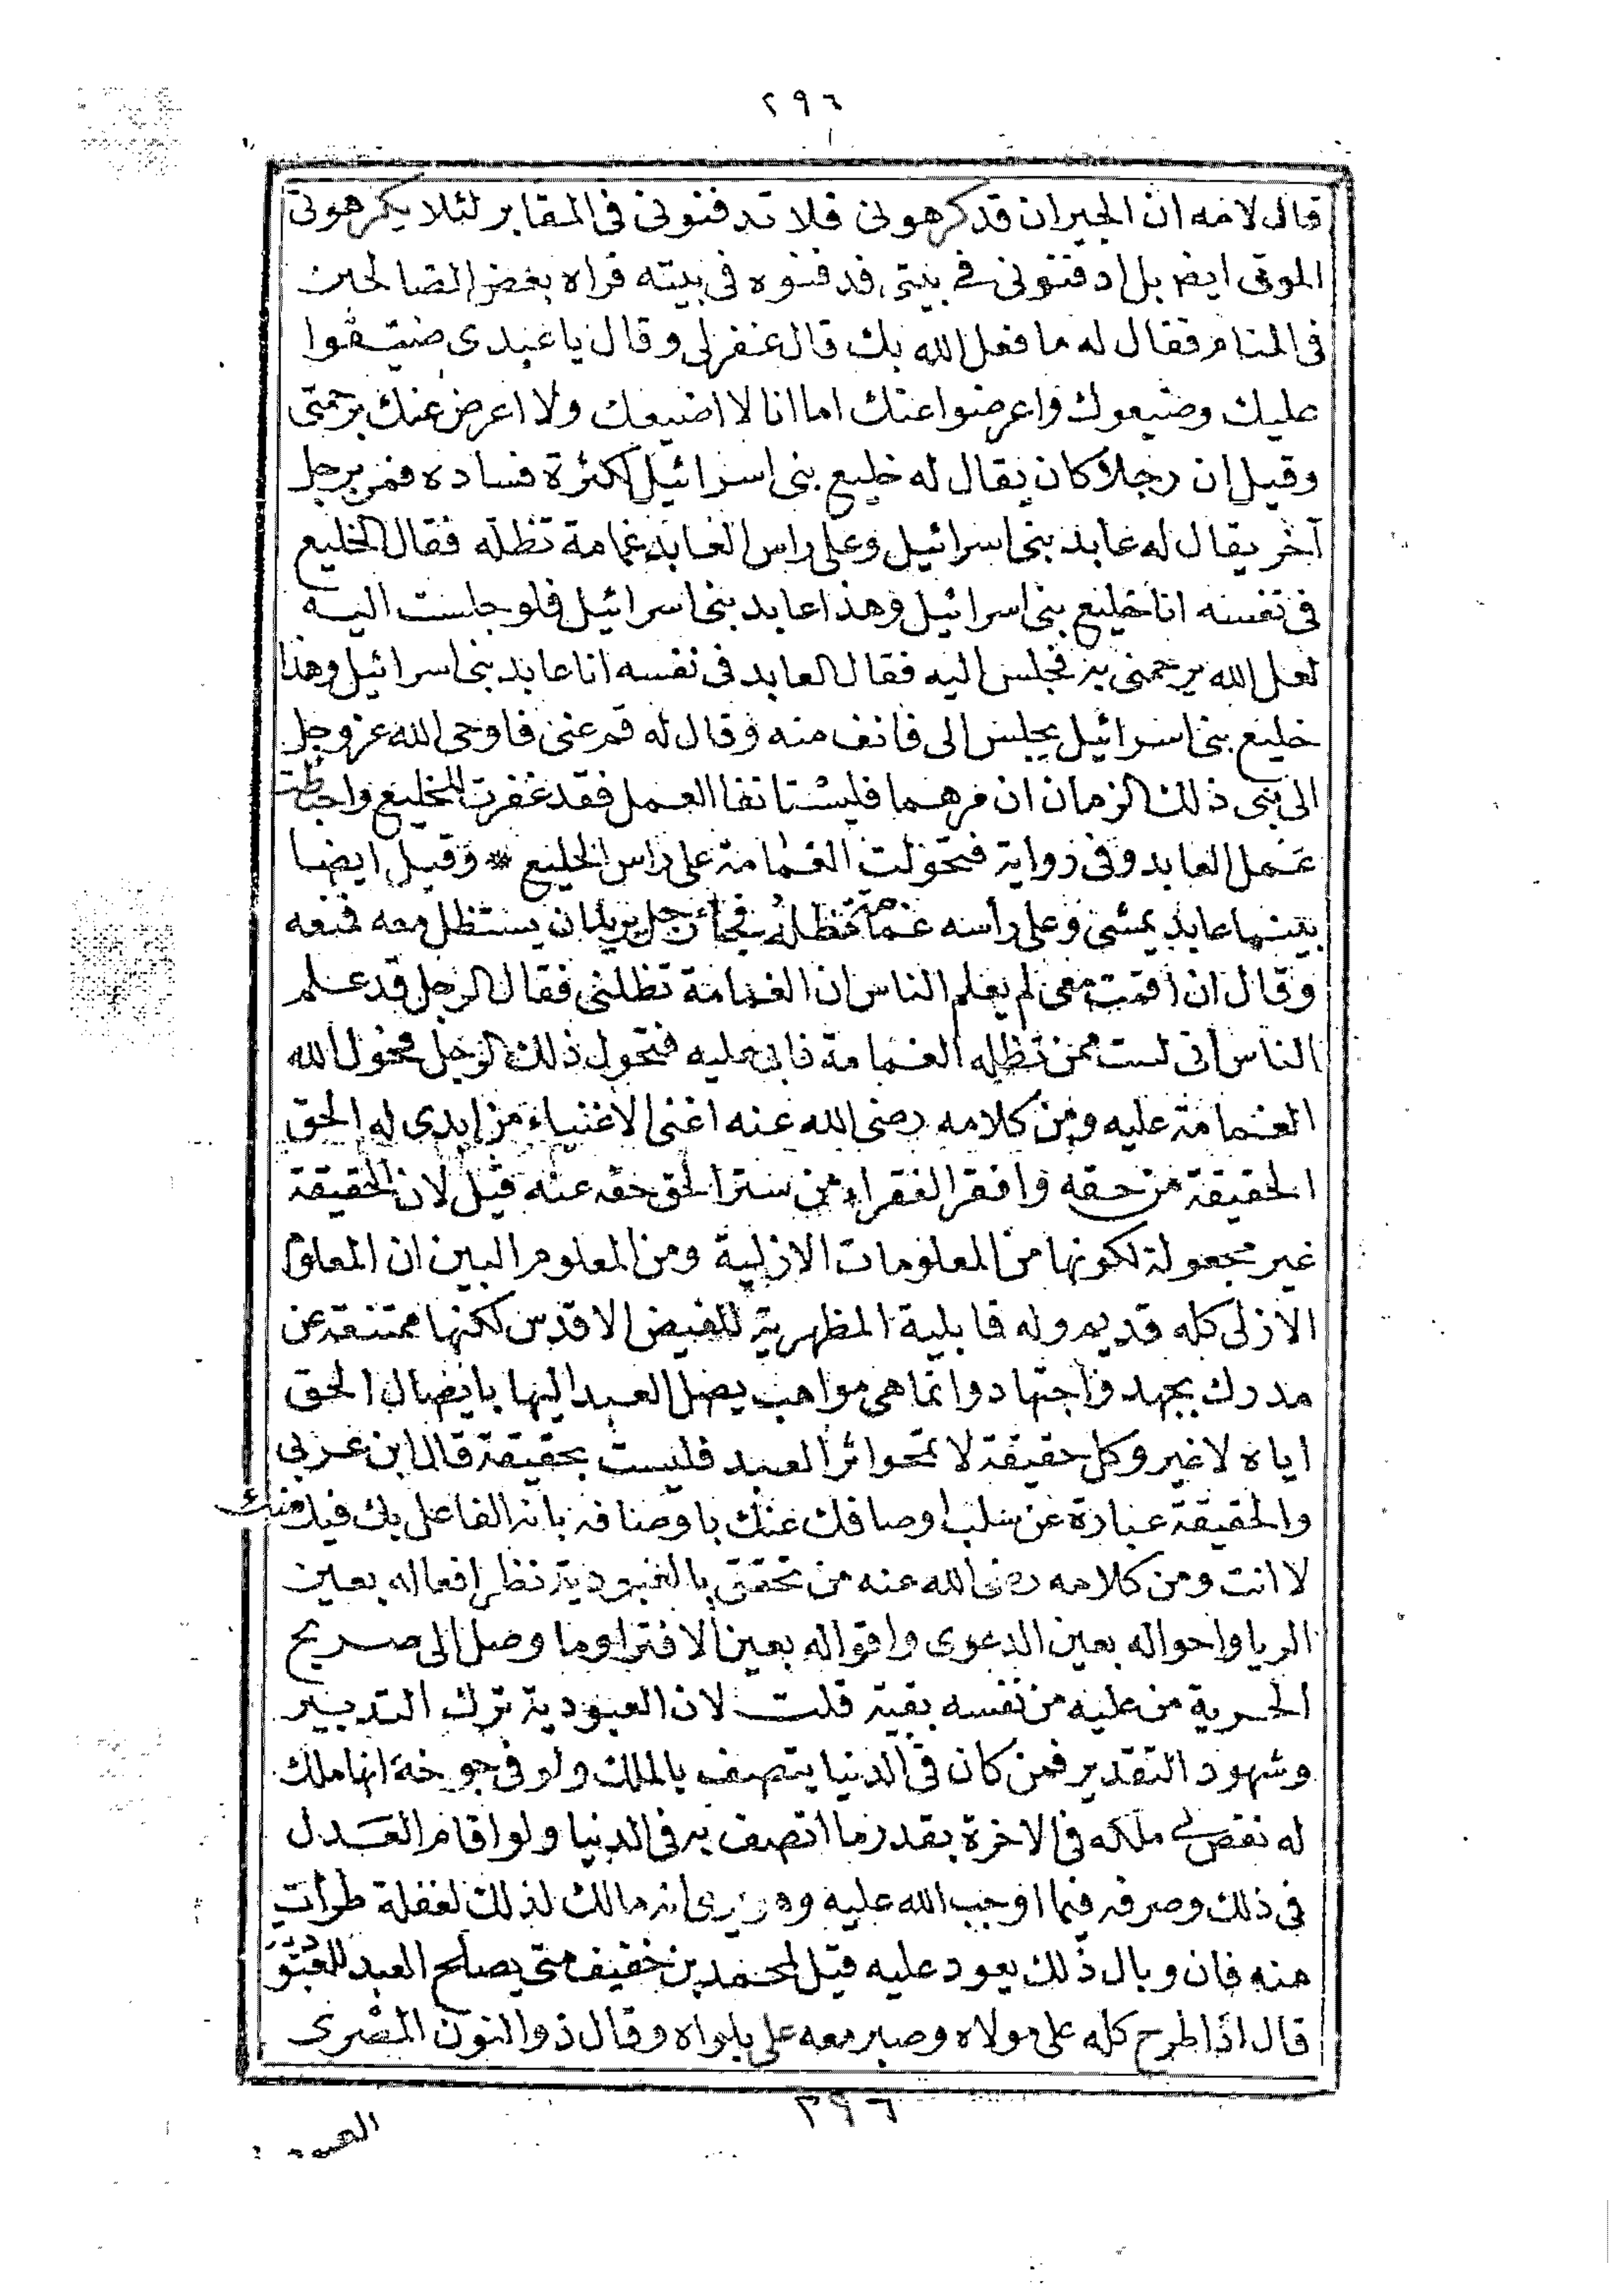 ٢٩٦
قال لامه ان الجيران قد كرهونى فلا تدفنونى فى المقابر لئلا يكرهونى
الموتى ايض بل ادفنونى فى بيتى فدفنوه فى بيته فراه بعض الصالحين
فى المنام فقال له ما فعل الله بك قال غفر لى وقال يا عبدى ضيقوا
عليك وضيعوك واعرضوا عنك اما انا لا اضيعك ولا اعرض عنك برحمتى
وقيل ان رجلا كان يقال له خليع بنى اسرائيل لكثرة فساده فمر برجل
آخر يقال له عابد بنى اسرائيل وعلى راس العابد غمامة تظله فقال الخليع
فى نفسه انا خليع بنى اسرائيل وهذا عابد بنى اسرائيل فلو جلست اليه
لعل الله يرحمنى به فجلس اليه فقال العابد فى نفسه انا عابد بنى اسرائيل وهذا
خليع بنى اسرائيل يجلس الى فانف منه وقال له قم عنى فاوحى الله عز وجل
الى نبى ذلك الزمان ان مرهما فليستانفا العمل فقد غفرت للخليع واحبطت
عمل العابد وفى رواية فتحولت الغمامة على راس الخليع * وقيل ايضا
بينما عابد يمشى وعلى رأسه غمامة تظله فجاء رجل يريد ان يستظل معه فمنعه
وقال ان اقمت معى لم يعلم الناس ان الغمامة تظلنى فقال الرجل قد علم
الناس انى لست ممن تظله الغمامة فابى عليه فتحول ذلك الرجل فحول الله
الغمامة عليه ومن كلامه رضى الله عنه اغنى الاغنياء من ابدى له الحق
الحقيقة من حقه وافقر الفقراء من ستر الحق حقه عنه قيل لان الحقيقة
غير مجعولة لكونها من المعلومات الازلية ومن المعلوم البين ان المعلوم
الازلى كله قديم وله قابلية المظهرية للفيض الاقدس لكنها ممتنعة عن
مدرك بجهد واجتهاد وانما هى مواهب يصل العبد اليها بايصال الحق
اياه لا غير وكل حقيقة لا تمحوا اثر العبد فليست بحقيقة قال ابن عربى
والحقيقة عبارة عن سلب اوصافك عنك باوصافه بانه الفاعل بك فيك منك
لا انت ومن كلامه رضى الله عنه من تحقق بالعبودية نظر افعاله بعين
الريا واحواله بعين الدعوى واقواله بعين الافترا وما وصل الى صريح
الحرية من عليه من نفسه بقية قلت لان العبودية ترك التدبير
وشهود التقدير فمن كان فى الدنيا يتصف بالملك ولو فى جوخة انها ملك
له نقص ملكه فى الاخرة بقدر ما اتصف به فى الدنيا ولو اقام العدل
فى ذلك وصرفه فيما اوجب الله عليه وهو يرى انه مالك لذلك لغفلة طرأت
منه فان وبال ذلك يعود عليه قيل لمحمد بن خفيف متى يصلح العبد للعبودية
قال اذا طرح كله على مولاه وصبر معه على بلواه وقال ذو النون المصرى
٢٩٦